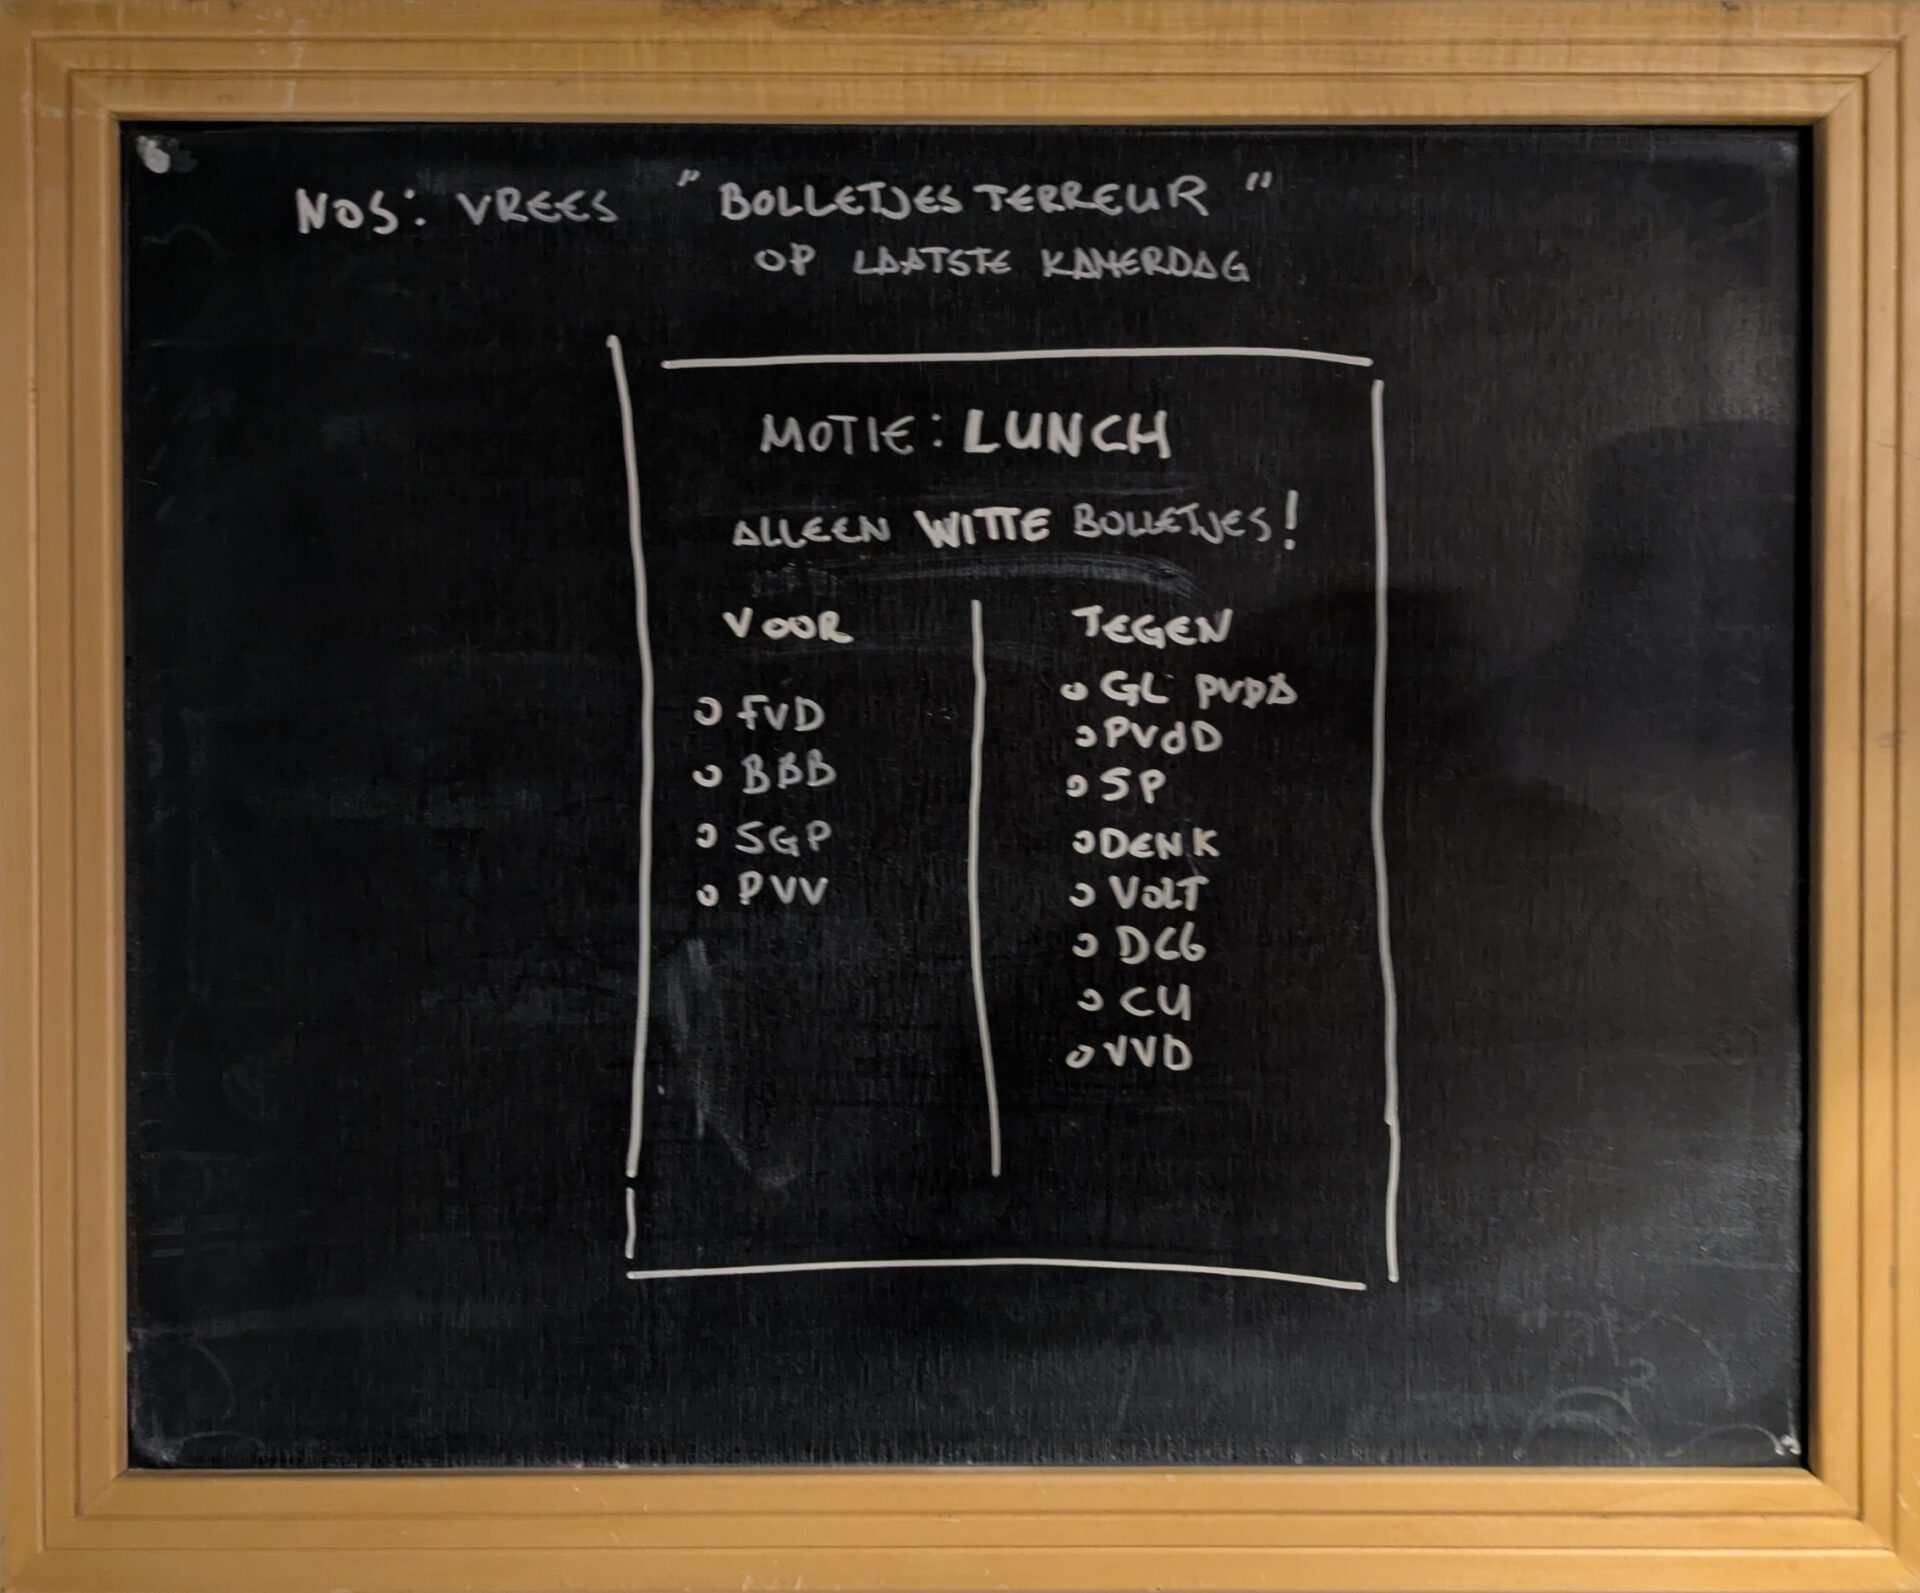 NOS: VREES "BOLLETJESTERREUR"
OP LAATSTE KAMERDAG
MOTIE: LUNCH
ALLEEN WITTE BOLLETJES!
VOOR
FVD
BBB
SGP
PVV
TEGEN
GL PVDA
PVdD
SP
DENK
VOLT
D66
CU
VVD